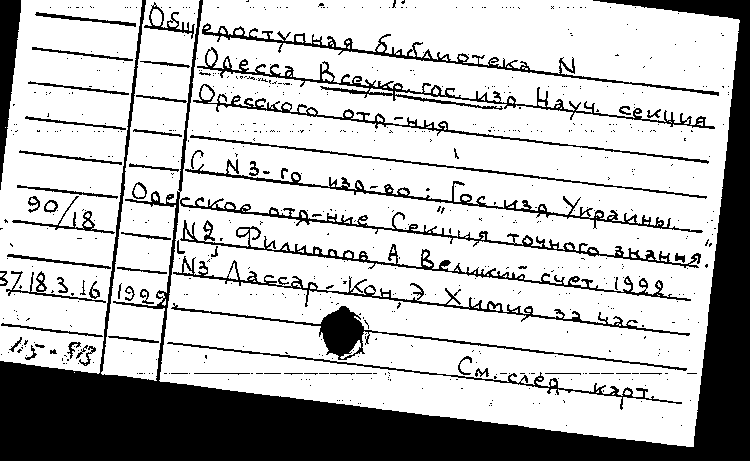 Общедоступная библиотека N
Одесса, Всеукр. гос. изд. Науч. секция
Одесского отд-ния
С N3-го изд-во: Гос. изд. Украины.
Одесское отд-ние, "Секция точного знания".
90/18
N2. Филиппов, А. Великий счет. 1922.
[N3] Лассар-Кон, Э. Химия за час.
37.18.3.16 1922.
115-813
См. след. карт.